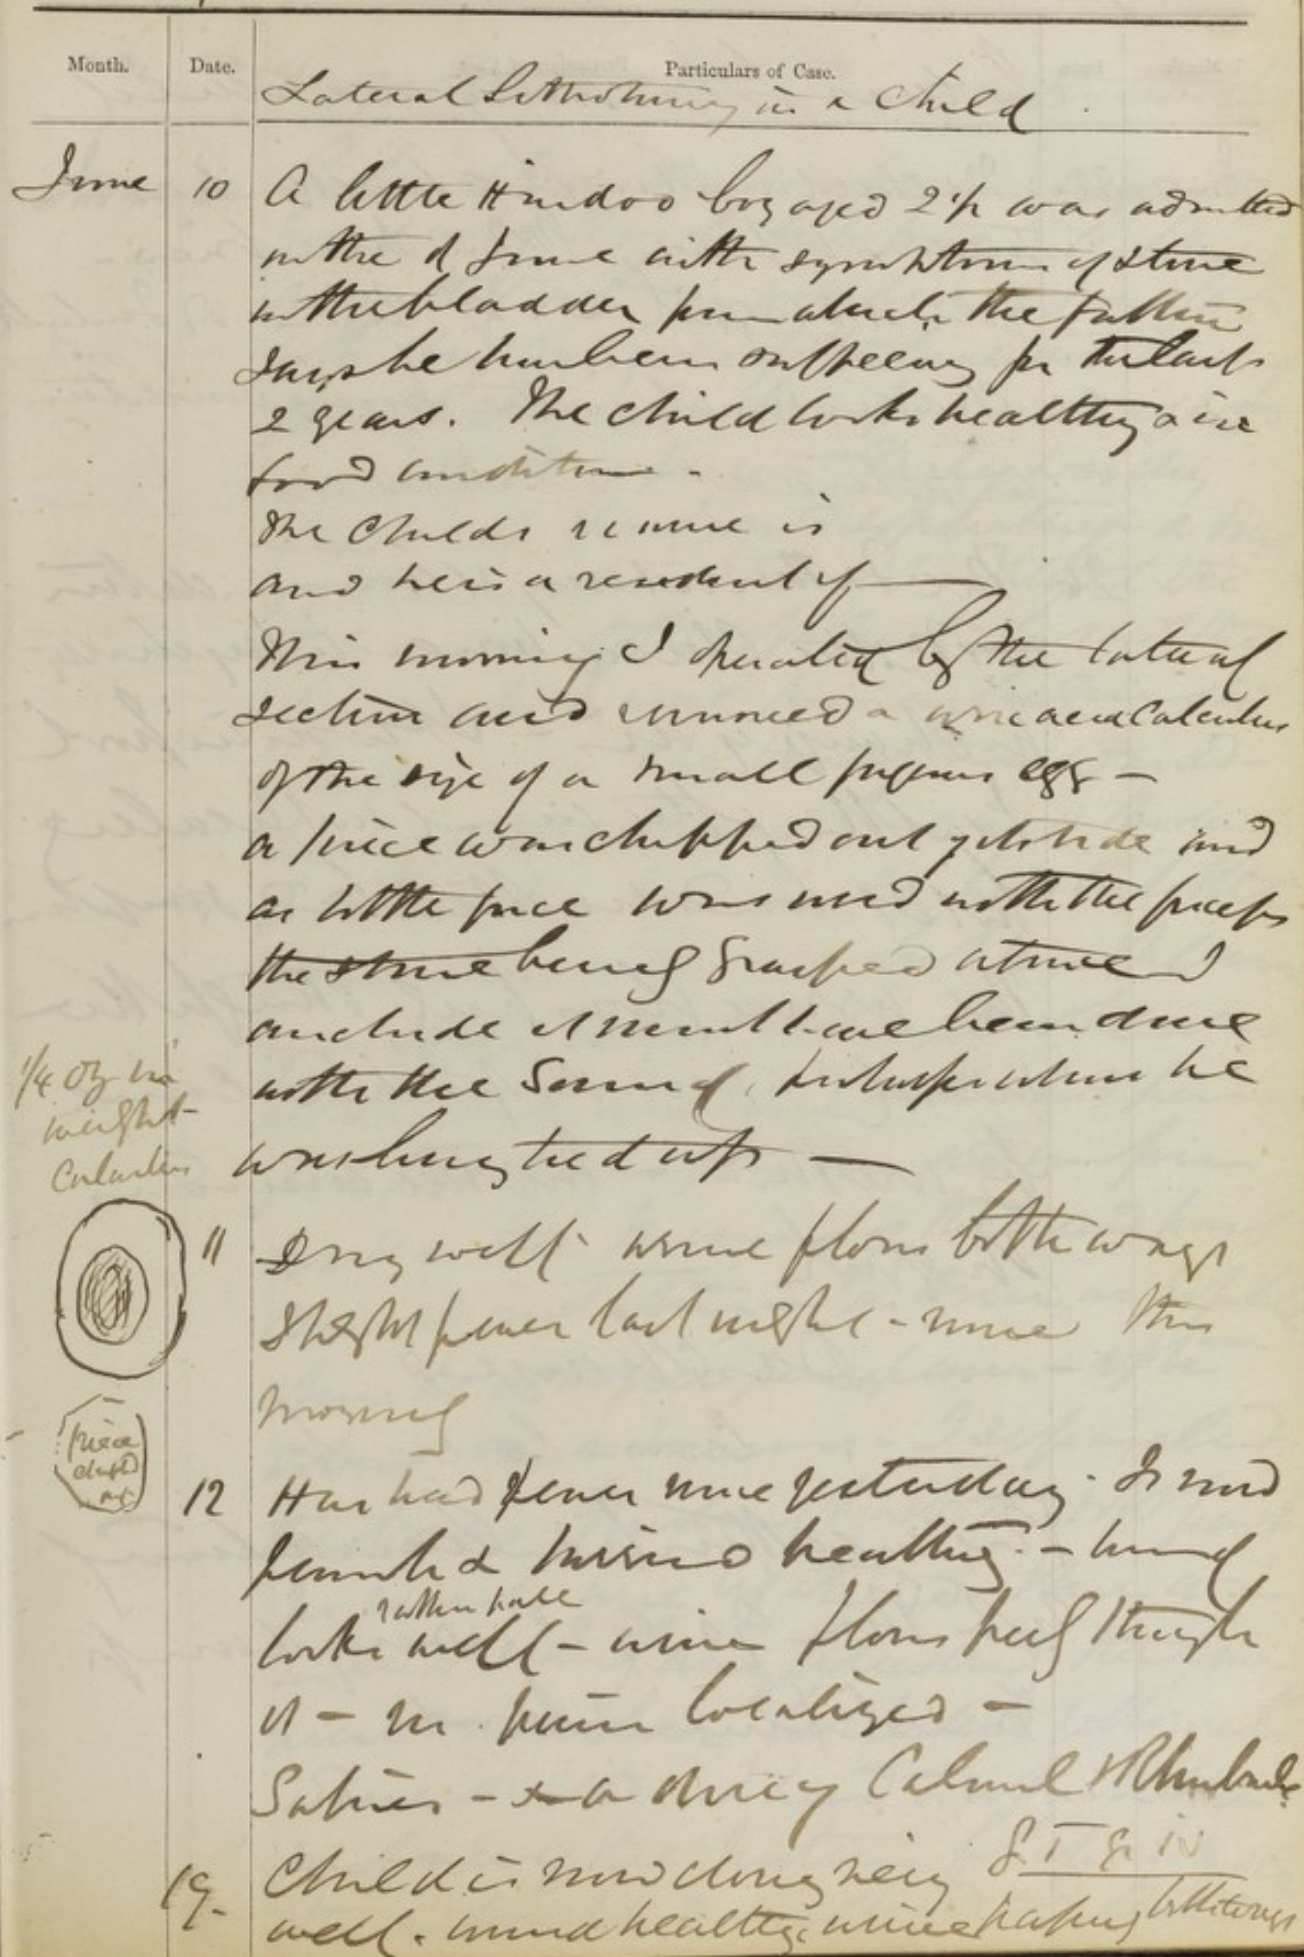 Month. Date. Particulars of Case.
Lateral Lithotomy in a Child
June 10 A little Hindoo boy aged 2 1/2 was admitted
on the of June with symptoms of stone
in the bladder from which the father
says he has been suffering for the last
2 years. The child looks healthy & in
good condition -
The Childs name is
and he is a resident of —
This morning I operated by the lateral
section and removed a uric acid Calculus
of the size of a small pigeons egg -
a piece was chipped out of its side and
as little force was used with the forceps
the stone being grasped at once I
conclude it must have been done
with the Sound, perhaps when he
was being tied up —
1/4 oz in
weight
Calculus
11 Doing well urine flows both ways
Slight fever last night - none this
morning
piece
chipped
out
12 Has had fever since yesterday. Is now
feverish & - wound
rather pale
looks well - urine flows freely through
it - no pain localized -
- a dose of Calomel & Rhubarb
19. Child is now doing very
well. wound healthy, urine passing both ways